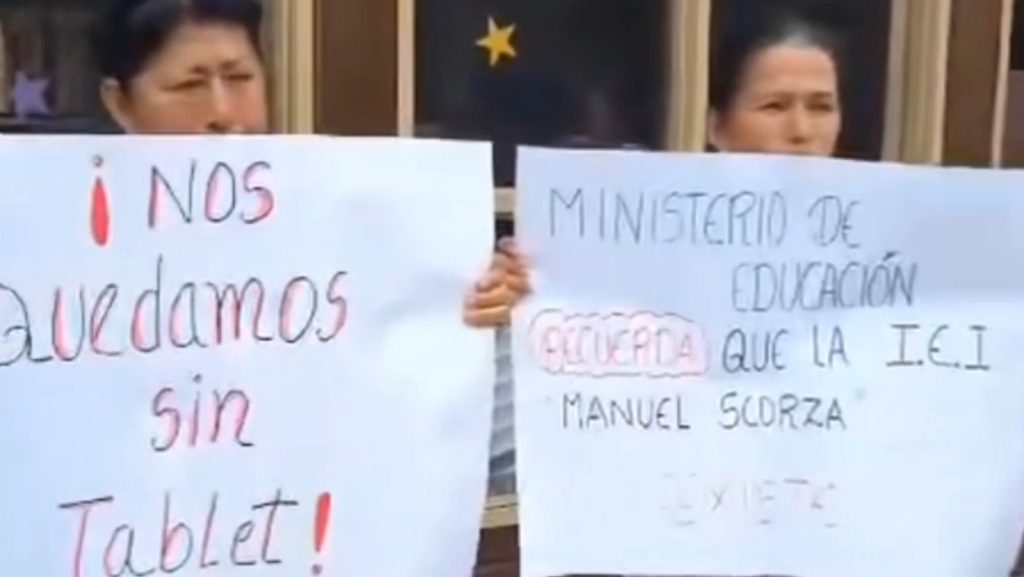 ¡NOS
Quedamos
sin
Tablet!
MINISTERIO DE
EDUCACIÓN
RECUERDA QUE LA I.E.I
"MANUEL SCORZA"
EXISTE